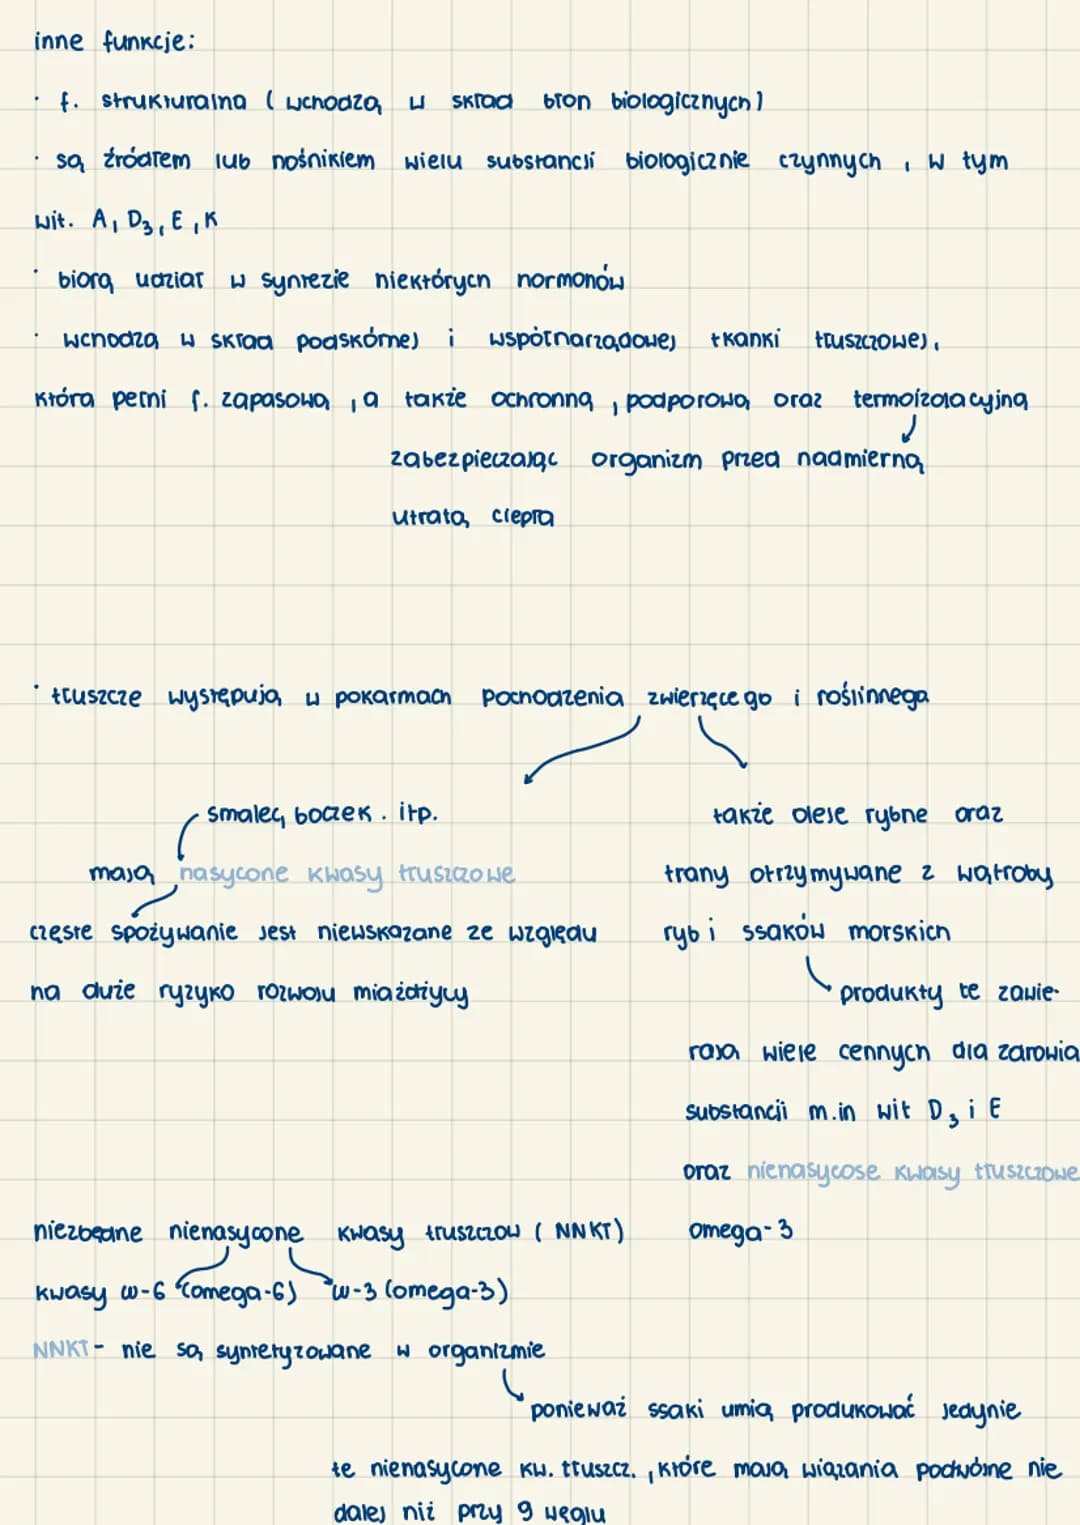 inne funkcje:
· f. strukturalna ( wchodzą w skład błon biologicznych)
· są źródłem lub nośnikiem wielu substancji biologicznie czynnych , w tym
wit. A, D3, E, K
· biorą udział w syntezie niektórych hormonów
· wchodzą w skład podskórnej i współnarządowej tkanki tłuszczowej,
która pełni f. zapasową , a także ochronną , podporową oraz termoizolacyjną
zabezpieczając organizm przed nadmierną
utratą ciepła
· tłuszcze występują w pokarmach pochodzenia zwierzęcego i roślinnega
smalec, boczek. itp.
także oleje rybne oraz
mają nasycone kwasy tłuszczowe
trany otrzymywane z wątroby
częste spożywanie jest niewskazane ze względu
ryb i ssaków morskich
na duże ryzyko rozwoju miażdżycy
produkty te zawie-
rają wiele cennych dla zdrowia
substancji m.in wit D3 i E
oraz nienasycose kwasy tłuszczowe
niezbędne nienasycone kwasy tłuszczow ( NNKT)
omega-3
kwasy w-6 (omega-6) w-3 (omega-3)
NNKT- nie są syntetyzowane w organizmie
ponieważ ssaki umią produkować jedynie
te nienasycone kw. tłuszcz. , które mają wiązania podwójne nie
dalej niż przy 9 węglu